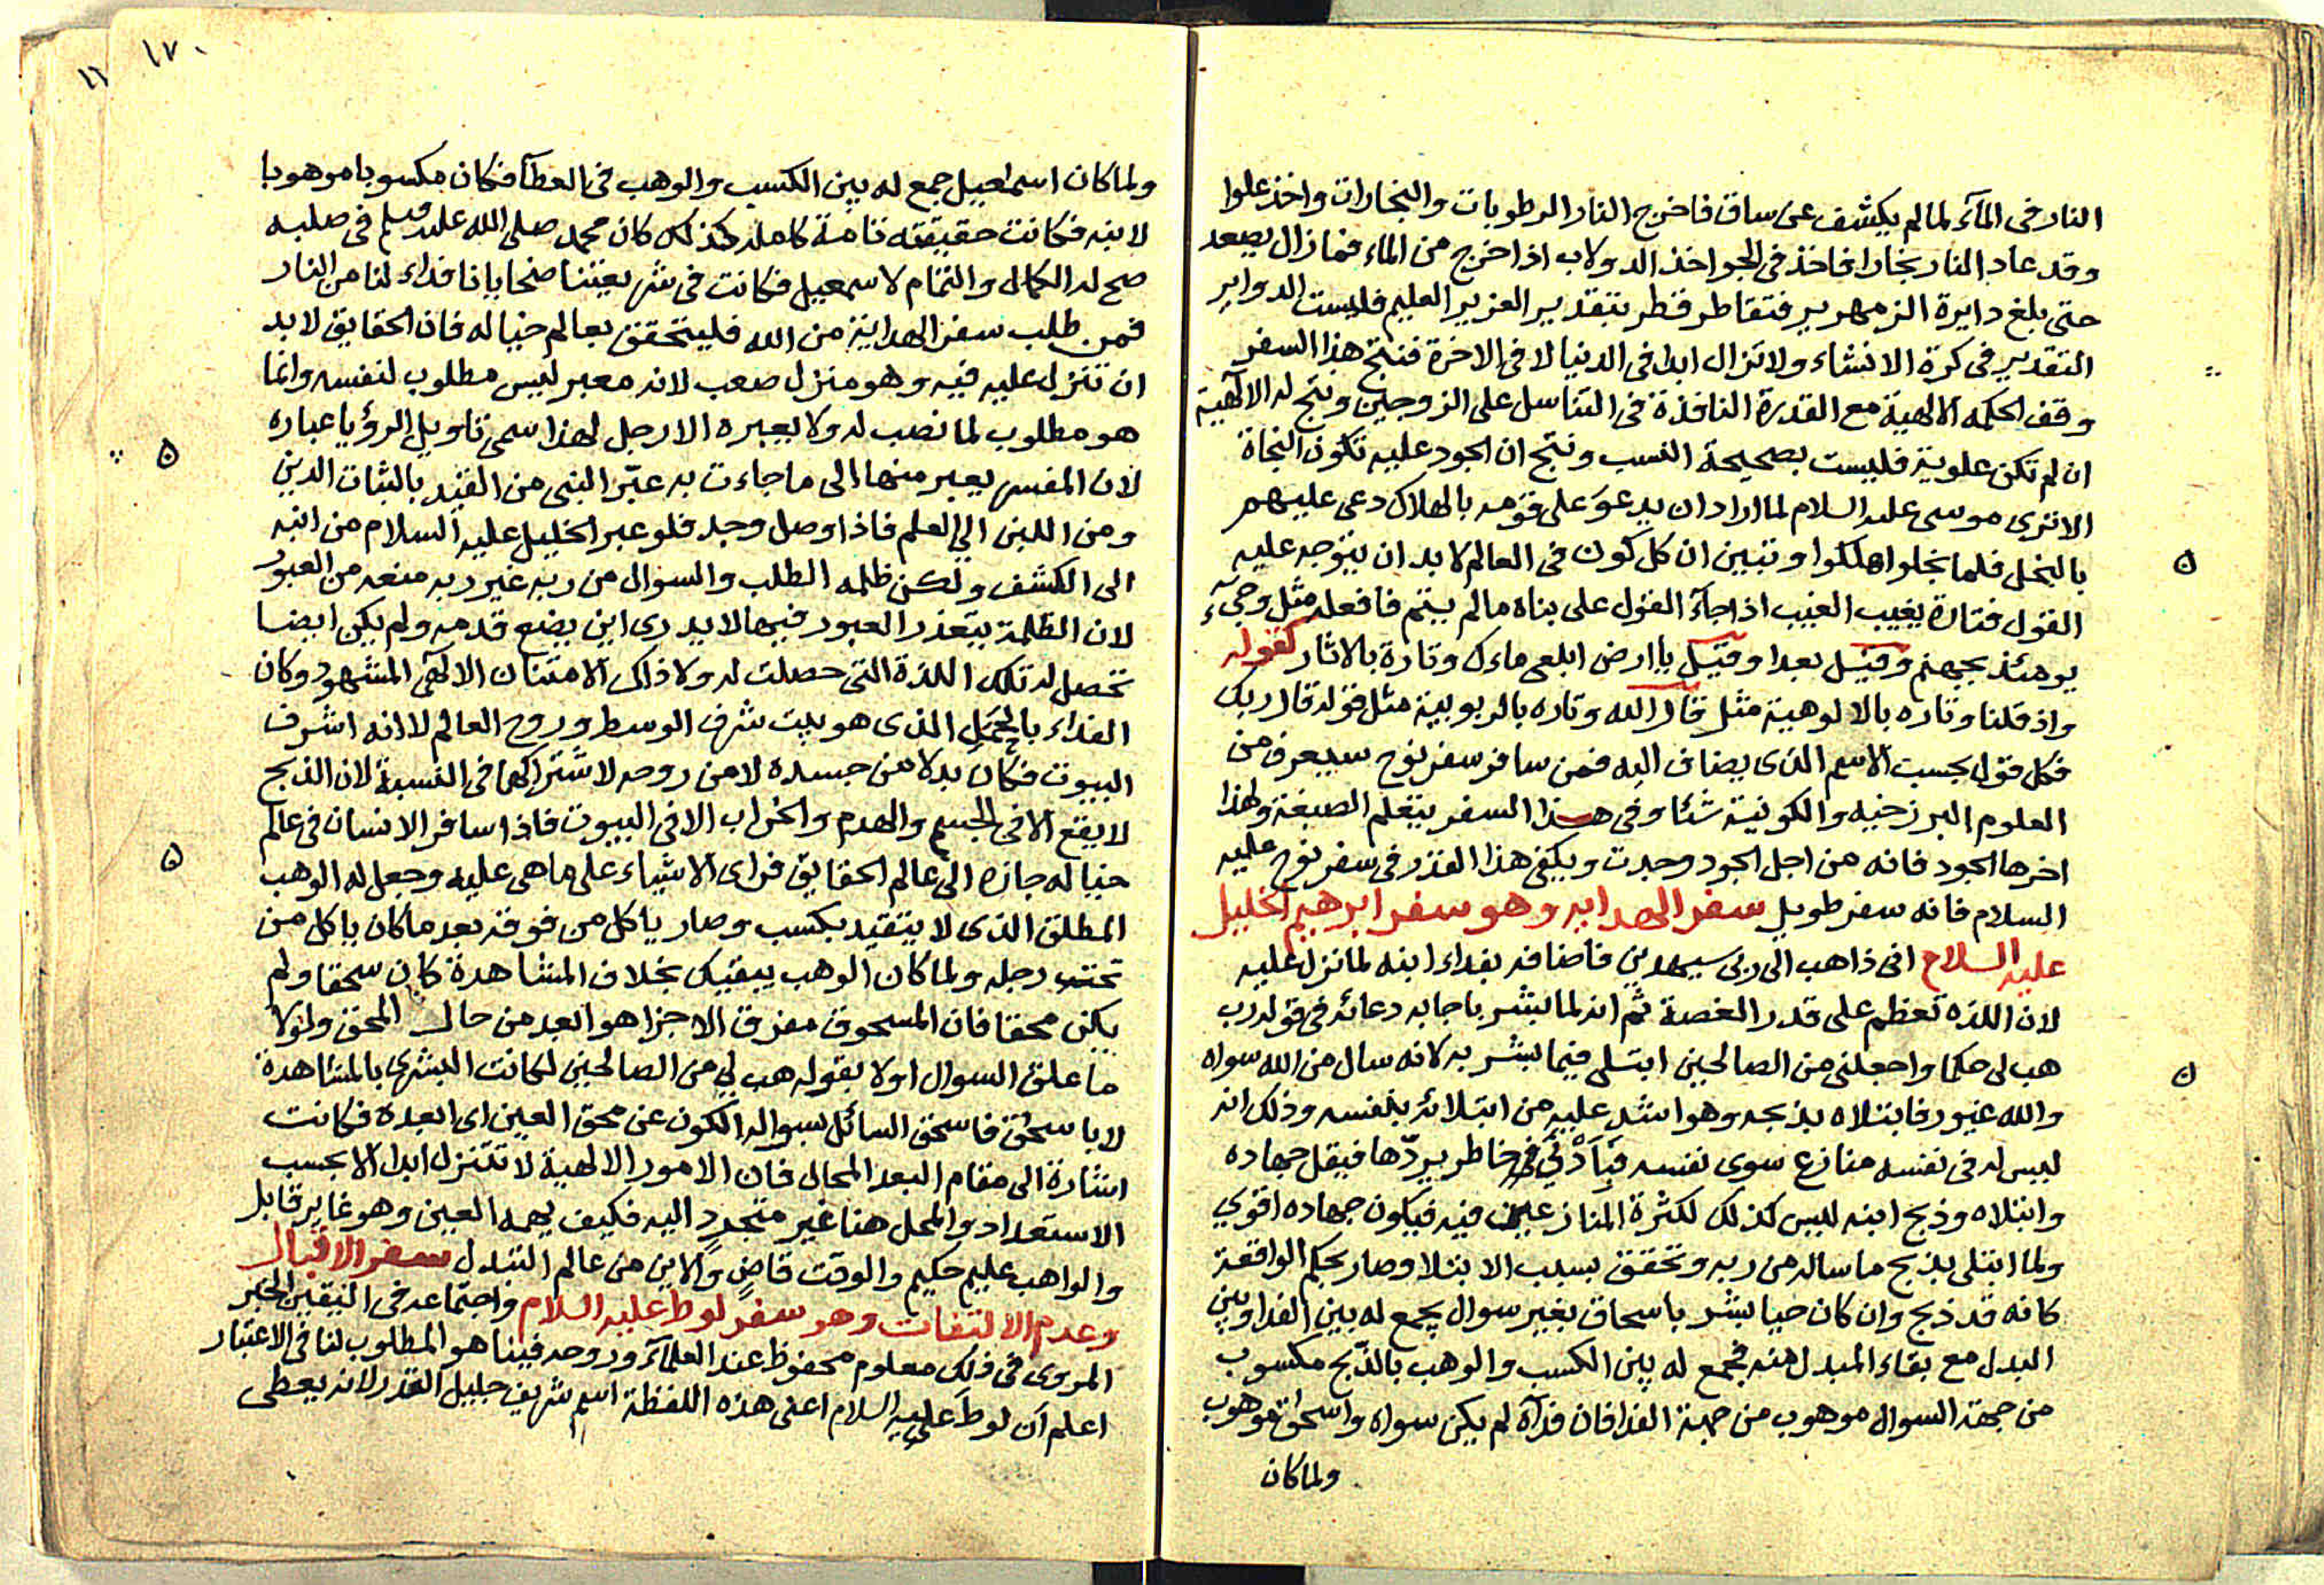 النار فى المآء لما لم يكشف عن ساق فاخرج النار الرطوبات والبخارات واخذ علوا
وقد عاد النار بخارا فاخذ فى الجو اخذ الدولاب اذا خرج من الماء فما زال يصعد
حتى بلغ دايرة الزمهرير فتقاطر فقطر بتقدير العزيز العليم فليست الدواير
التقدير فى كرة الانشاء ولا تزال ابدا فى الدنيا لا فى الاخرة فنتج هذا السفر
وقف الحكمه الالهية مع القدرة النافذة فى التناسل على الزوجين ونتج له الالهية
ان لم تكن علوية فليست بصحيحة النسب ونتج ان الجود عليه تكون النجاة
الا ترى موسى عليه السلام لما اراد ان يدعو على قومه بالهلاك دعى عليهم
بالبخل فلما بخلوا هلكوا وتبين ان كل كون فى العالم لا بد ان يتوجه عليه
القول فتارة بغيب الغيب اذا جآء القول على بناء ما لم يسم فاعله مثل وجىء
يومئذ بجهنم وقيل بعدا وقيل يا ارض ابلعى ماءك وتارة بالاثار كقوله
واذ قلنا وتاره بالالوهية مثل قال الله وتاره بالربوبية مثل قوله قال ربك
فكل قول بحسب الاسم الذى يضاف اليه فمن سافر سفر نوح سيعرف من
العلوم البرزخيه والكونية شئا وفى هذا السفر يتعلم الصنعة ولهذا
اخرها الجود فانه من اجل الجود وجدت ويكفى هذا القدر فى سفر نوح عليه
السلام فانه سفر طويل سفر الهدايه وهو سفر ابرهيم الخليل
عليه السلام انى ذاهب الى ربى سيهدين فاضافه بفداء ابنه لما نزل عليه
لان اللذه تعظم على قدر الغصة ثم انه لما بشر باجابه دعائه فى قوله رب
هب لى حكما واجعلنى من الصالحين ابتلى فيما بشر به لانه سال من الله سواه
والله غيور فابتلاه بذبحه وهو اشد عليه من ابتلائه بنفسه وذلك انه
ليس له فى نفسه منازع سوى نفسه فبادنى خاطر يردّها فيقل جهاده
وابتلاه وذبح ابنه ليس كذلك لكثرة المنازعين فيه فيكون جهاده اقوي
ولما ابتلى بذبح ما ساله من ربه وتحقق بسبب الابتلا وصار بحكم الواقعة
كانه قد ذبح وان كان حيا بشر باسحاق بغير سوال يجمع له بين الفدا وبين
البدل مع بقاء المبدل منه فجمع له بين الكسب والوهب بالذبح مكسوب
من جهة السوال موهوب من جهة الفدا فان فدآه لم يكن سواه واسحاق موهوب
ولما كان
١٧٠
١٦
ولما كان اسمعيل جمع له بين الكسب والوهب فى العطآ فكان مكسوبا موهوبا
لابنه فكانت حقيقته تامة كامله كذلك كان محمد صلى الله عليه وسلم فى صلبه
صح له الكمال والتمام لاسمعيل فكانت فى شريعتنا ضحايانا فداء لنا من النار
فمن طلب سفر الهداية من الله فليتحقق بعالم خياله فان الحقايق لا بد
ان تنزل عليه فيه وهو منزل صعب لانه معبر ليس مطلوب لنفسه وانما
هو مطلوب لما نصب له ولا يعبره الا رجل لهذا سمى تاويل الرؤيا عباره
لان المفسر يعبر منها الى ما جاءت به عبّر النبى من القيد بالثبات الدين
ومن اللبن الى العلم فاذا وصل وجد فلو عبر الخليل عليه السلام من ابنه
الى الكشف ولكن ظلمه الطلب والسوال من ربه غير ربه منعه من العبور
لان الظلمة يتعذر العبور فيها لا يدرى اين يضع قدمه ولم يكن ايضا
تحصل له تلك اللذة التى حصلت له ولا ذاك الامتنان الالهى المشهود وكان
الفداء بالحمل الذى هو بيت شرف الوسط وروح العالم لا انه اشرف
البيوت فكان بدلا من جسده لا من روحه لاشتراكهما فى النسبة لان الذبح
لا يقع الا فى الجسم والهدم والخراب الا فى البيوت فاذا سافر الانسان فى عالم
خياله جازه الى عالم الحقايق فراى الاشياء على ما هى عليه وجعل له الوهب
المطلق الذى لا يتقيد بكسب وصار ياكل من فوقه بعد ما كان ياكل من
تحت رجله ولما كان الوهب يبقيك بخلاف المشاهدة كان سحقا ولم
يكن محقا فان المسحوق مفرق الاجزا هو ابعد من حال المحق ولولا
ما علق السوال اولا بقوله هب لي من الصالحين لكانت البشرى بالمشاهدة
لا باسحق فاسحق السائل بسواله الكون عن محق العين اى ابعده فكانت
اشارة الى مقام البعد المحال فان الامور الالهية لا تتنزل ابدا الا بحسب
الاستعداد والمحل هنا غير متجرد اليه فكيف يهبه العين وهو غاير قابل
والواهب عليم حكيم والوقت قاضٍ والاين من عالم التبدل سفر الاقبال
وعدم الالتفات وهو سفر لوط عليه السلام واجتماعه فى اليقين الخبر
المروى فى ذلك معلوم محفوظ عند العلمآء وروحه فينا هو المطلوب لنا فى الاعتبار
اعلم ان لوط عليه السلام اعنى هذه اللفظة اسم شريف جليل القدر لانه يعطى